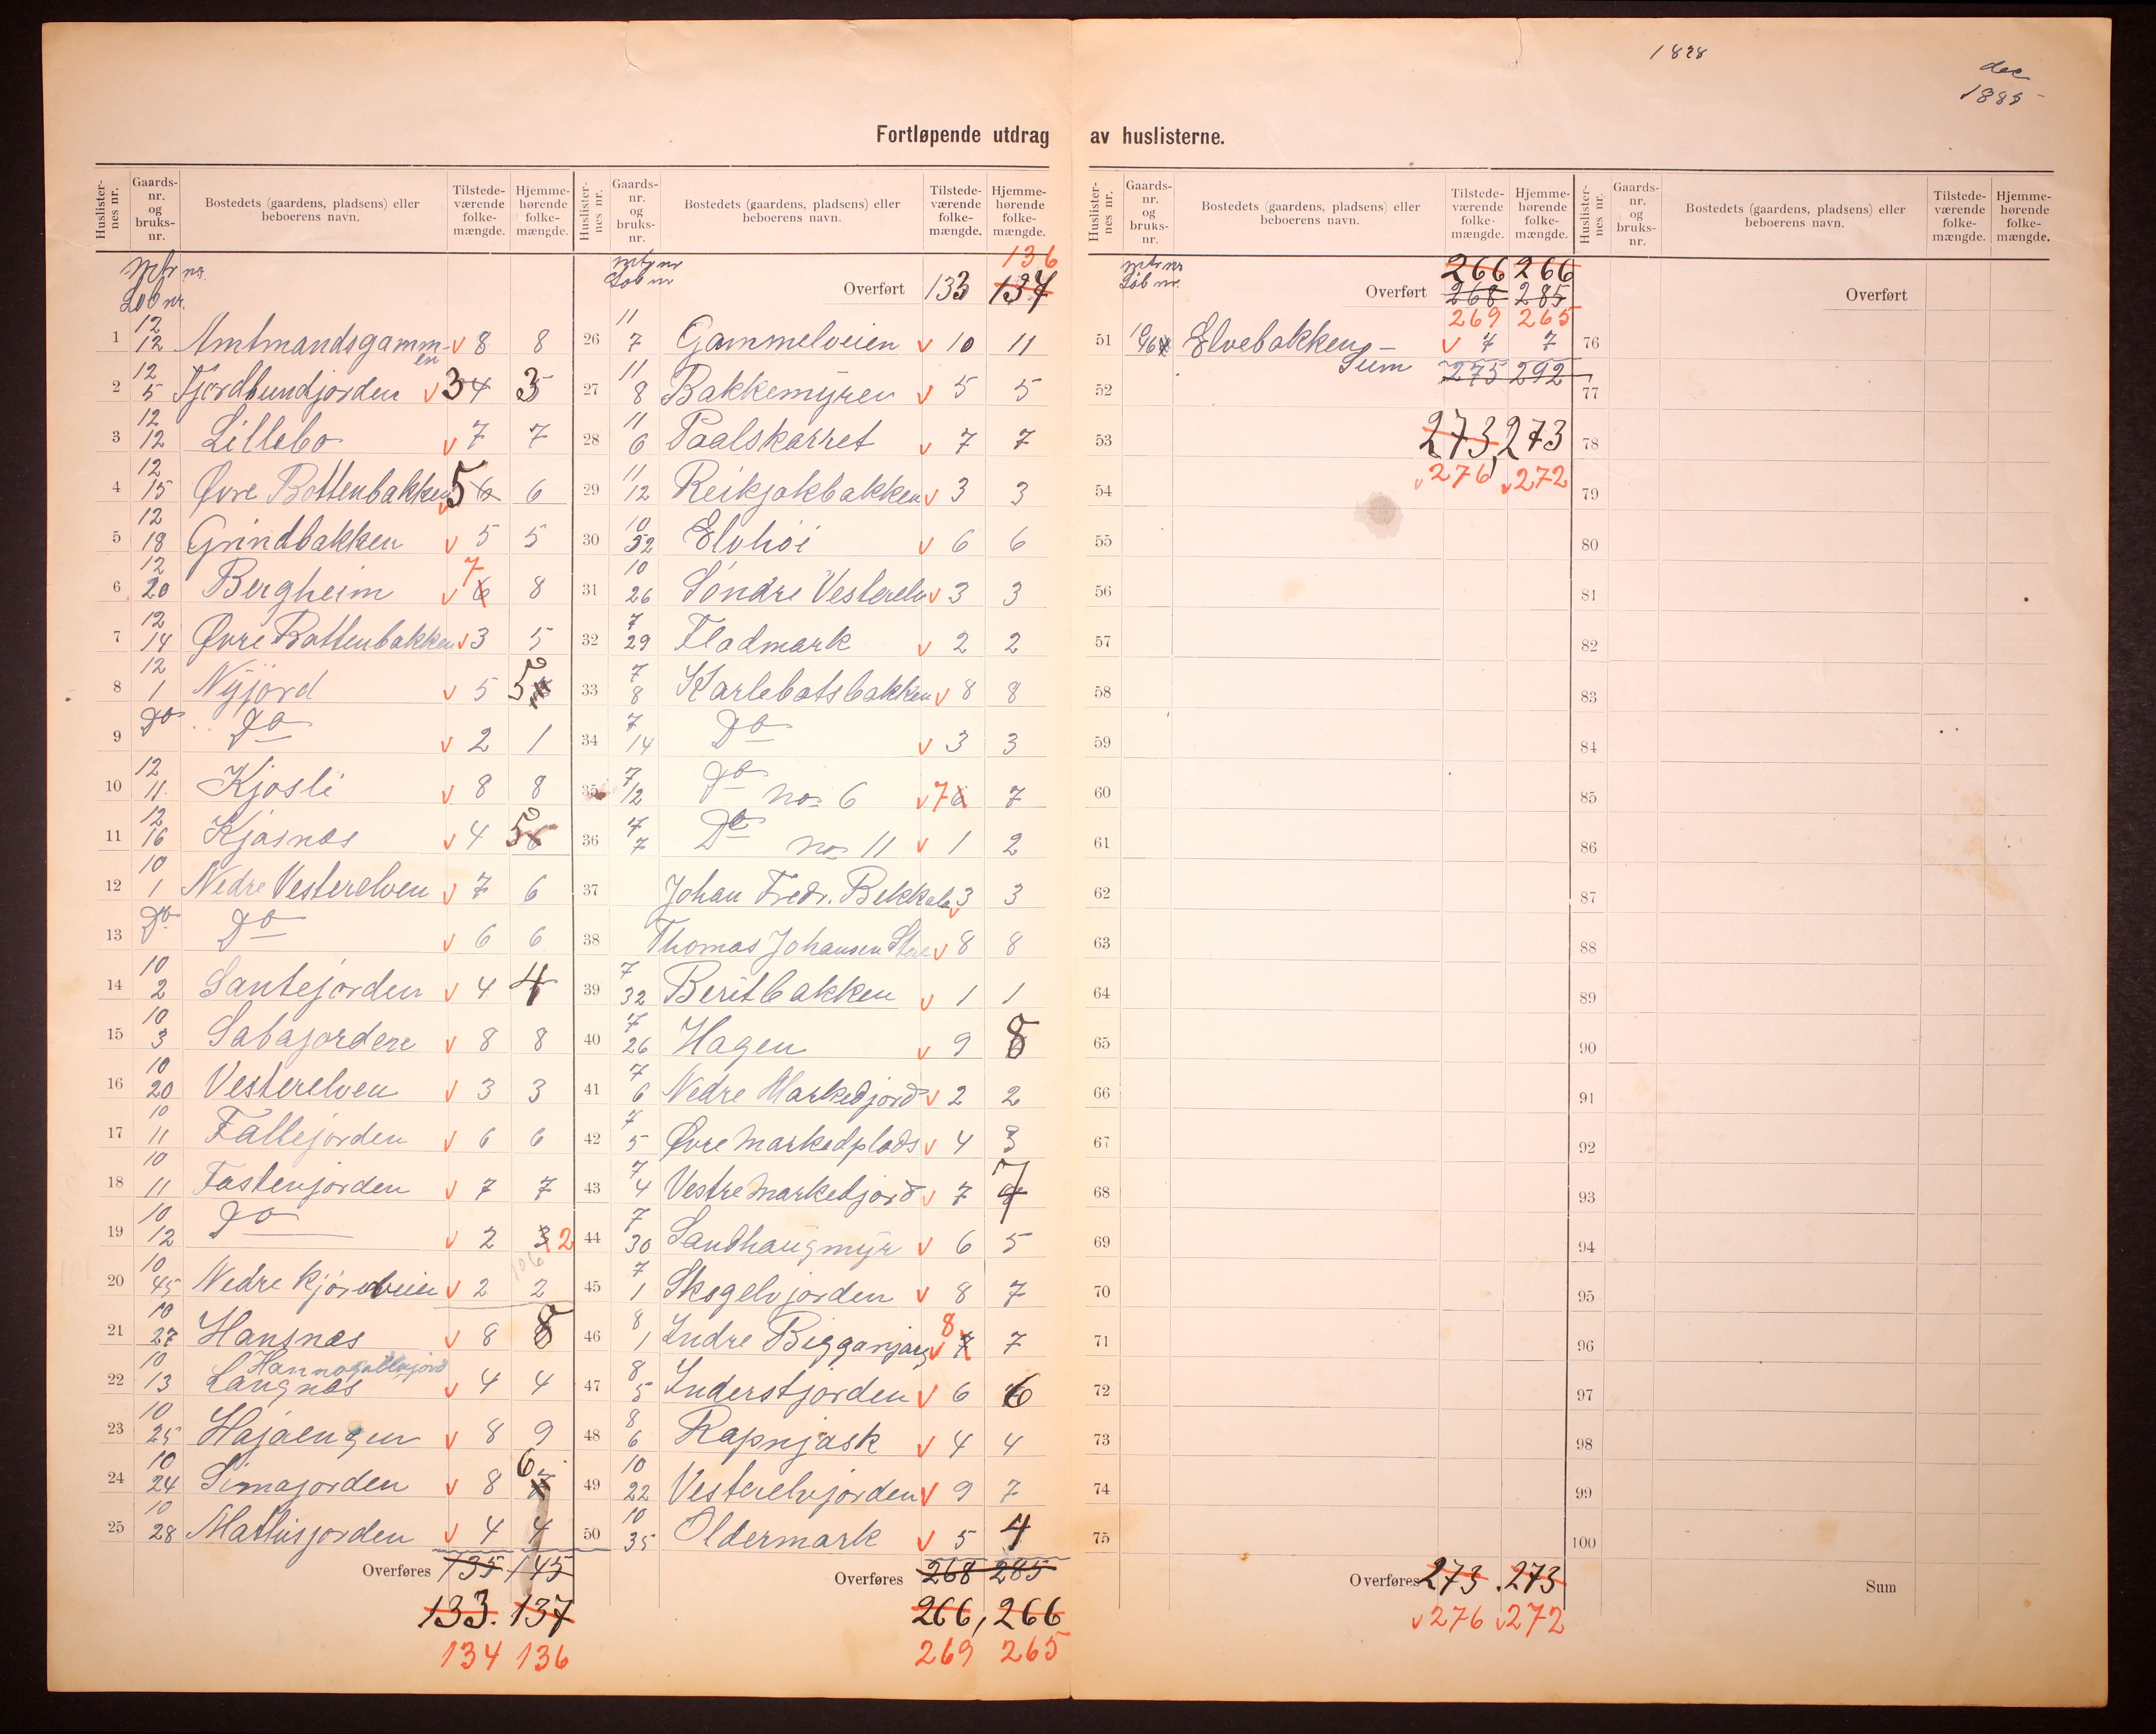 1828
dec
1885
Fortløpende utdrag av huslisterne.
Huslister-nes nr. Gaards-nr. og bruks-nr. Bostedets (gaardens, pladsens) eller beboerens navn. Tilstede-værende folke-mængde. Hjemme-hørende folke-mængde.
Mtr nr.
Løb nr.
1 12 12 Amtmandsgammen v 8 8
2 12 5 Fjordbundjorden v 3 4 3
3 12 12 Lillebo v 7 7
4 12 15 Øvre Bottenbakken v 5 6 6
5 12 18 Grindbakken v 5 5
6 12 20 Bergheim v 7 6 8
7 12 14 Øvre Bottenbakken v 3 5
8 12 1 Nyjord v 5 5
9 Do Do v 2 1
10 12 11 Kjosli v 8 8
11 12 16 Kjosnæs v 4 5 6
12 10 1 Nedre Vesterelven v 7 6
13 Do Do v 6 6
14 10 2 Santejorden v 4 4
15 10 3 Sabajorden v 8 8
16 10 20 Vesterelven v 3 3
17 10 11 Fallejorden v 6 6
18 10 11 Fastenjorden v 7 7
19 10 12 Do v 2 3 2
106
20 10 45 Nedre Kjøreveien v 2 2
21 10 27 Hansnæs v 8 8
22 10 13 Langnæs v 4 4
23 10 25 Hajaengen v 8 9
24 10 24 Simajorden v 8 6
25 10 28 Mathisjorden v 4 4
Overføres 135 145
133. 137
134 136
Huslister-nes nr. Gaards-nr. og bruks-nr. Bostedets (gaardens, pladsens) eller beboerens navn. Tilstede-værende folke-mængde. Hjemme-hørende folke-mængde.
mtr nr
Løb nr
136
Overført 133 137
26 11 7 Gammelveien v 10 11
27 11 8 Bakkemyren v 5 5
28 11 6 Paalskarret v 7 7
29 11 12 Reikjokbakken v 3 3
30 10 52 Elvhöi v 6 6
31 10 26 Söndre Vesterelv v 3 3
32 7 29 Fladmark v 2 2
33 7 8 Karlebotsbakken v 8 8
34 7 14 Do v 3 3
35 7 12 Do no 6 v 7 6 7
36 7 7 Do no 11 v 1 2
37 Johan Fredr. Bekkala v 3 3
38 Thomas Johansen v 8 8
39 7 32 Beritbakken v 1 1
40 7 26 Hagen v 9 8
41 7 6 Nedre Markedjord v 2 2
42 7 5 Øvre Markedplads v 4 3
43 7 4 Vestre Markedjord v 7 7
44 7 30 Sandhaugmyr v 6 5
45 7 1 Skogelvjorden v 8 7
46 8 1 Indre Bigganjarg v 8 7 7
47 8 5 Inderstjorden v 6 6
48 8 6 Rapnjask v 4 4
49 10 22 Vesterelvjorden v 9 7
50 10 35 Oldermark v 5 4
Overføres 268 285
266, 266
269 265
Huslister-nes nr. Gaards-nr. og bruks-nr. Bostedets (gaardens, pladsens) eller beboerens navn. Tilstede-værende folke-mængde. Hjemme-hørende folke-mængde.
mtr nr
Løb nr.
266 266
Overført 268 285
269 265
51 10 Elvebakken v 7 7
52 Sum 275 292
53 273, 273
54 v 276 v 272
55
56
57
58
59
60
61
62
63
64
65
66
67
68
69
70
71
72
73
74
75
Overføres 273. 273
v 276 v 272
Huslister-nes nr. Gaards-nr. og bruks-nr. Bostedets (gaardens, pladsens) eller beboerens navn. Tilstede-værende folke-mængde. Hjemme-hørende folke-mængde.
Overført
76
77
78
79
80
81
82
83
84
85
86
87
88
89
90
91
92
93
94
95
96
97
98
99
100
Sum